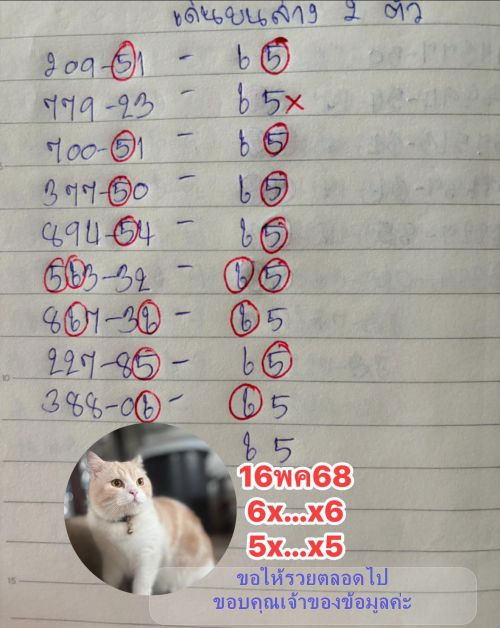 เด่นบนล่าง 2 ตัว
209-51 - 6 5
779-23 - 6 5x
700-51 - 6 5
377-50 - 6 5
894-54 - 6 5
563-32 - 6 5
867-36 - 6 5
227-85 - 6 5
10
388-06 - 6 5
6 5
16พค68
6x...x6
5x...x5
15
ขอให้รวยตลอดไป
ขอบคุณเจ้าของข้อมูลค่ะ